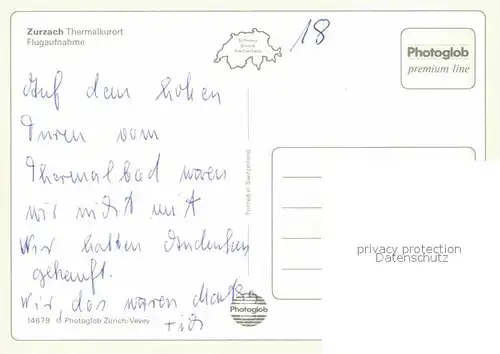 Zurzach Thermalkurort
Flugaufnahme
Schweiz
Suisse
Switzerland
18
Photoglob
premium line
Auf dem hohen
Turen vom
Thermalbad waren
wir nicht mit
Wir hatten Andenken
gekauft.
Wir, das waren
Printed in Switzerland
privacy protection
Datenschutz
Photoglob
14679 © Photoglob Zürich/Vevey